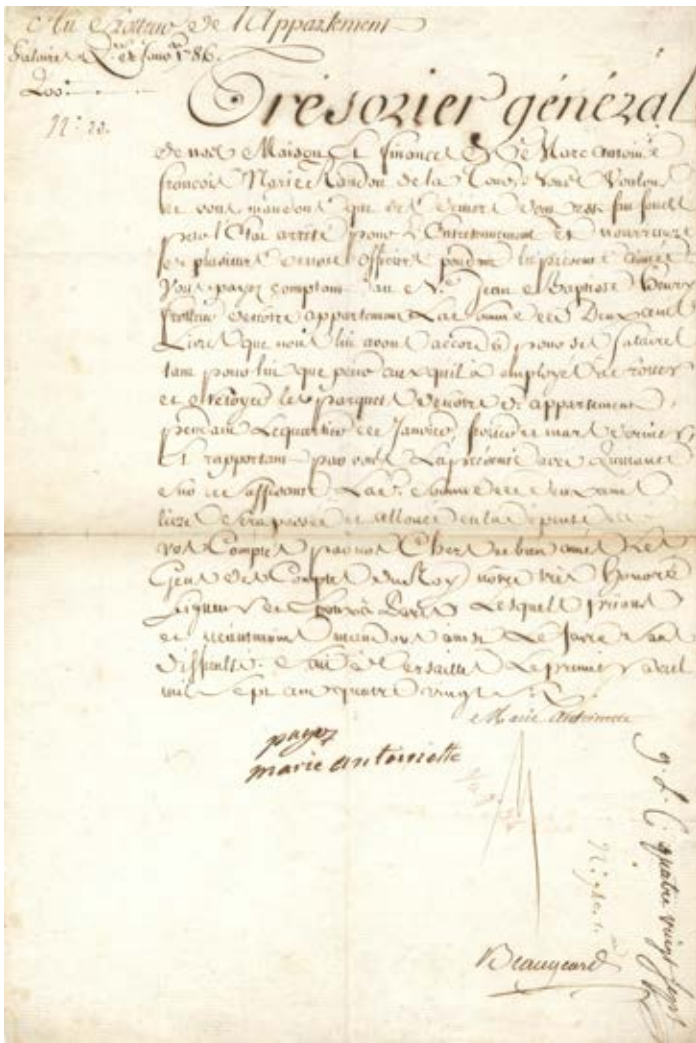 Au frotteur de l'Appartement
Salaire Qer de Janver 1786.
200
N.° 20.
Trésorier général
de notre Maison Et finances Me Marc antoine
françois Marie Randon de la Tour, Nous Voulons
et vous mandons que des deniers de
par l'Etat arreté pour L'Entretennement et nourriture
de plusieurs de nos officiers pendant la presente année
Vous payez comptant au Sr. Jean Baptiste henry
frotteur de notre appartement La somme de Deux cent
Livres que nous lui avons accordé pour ses salaires
tant pour lui que pour ceux qu'il a employé à frotter
et nettoyer les parquets de notre d. appartement
pendant Le quartier de Janvier fevrier et mars dernier
Et rapportant par vous La presente avec Quittance
sur ce suffisante La d. somme de deux cent
livres sera passée et allouée en la dépense de
vos Comptes par nos Chers et bien amés Les
Gens des Comptes du Roy notre très Honoré
Seigneur et Epoux à Paris Lesquels prions
et neanmoins mandons ainsi Le faire sans
difficulté. fait à Versailles Le premier avril
mil sept cent quatre vingt six
Marie Antoinette
payez
marie antoinette
quatre vingt sept
Beaugeard